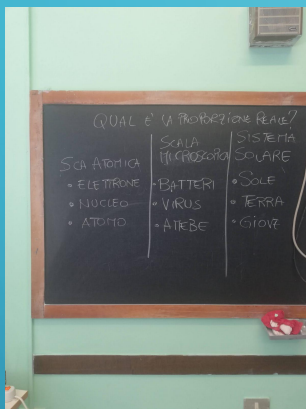 QUAL E' LA PROPORZIONE REALE?
SCA ATOMICA
• ELETTRONE
• NUCLEO
• ATOMO
SCALA
MICROSCOPICA
• BATTERI
• VIRUS
• AMEBE
SISTEMA
SOLARE
• SOLE
• TERRA
• GIOVE